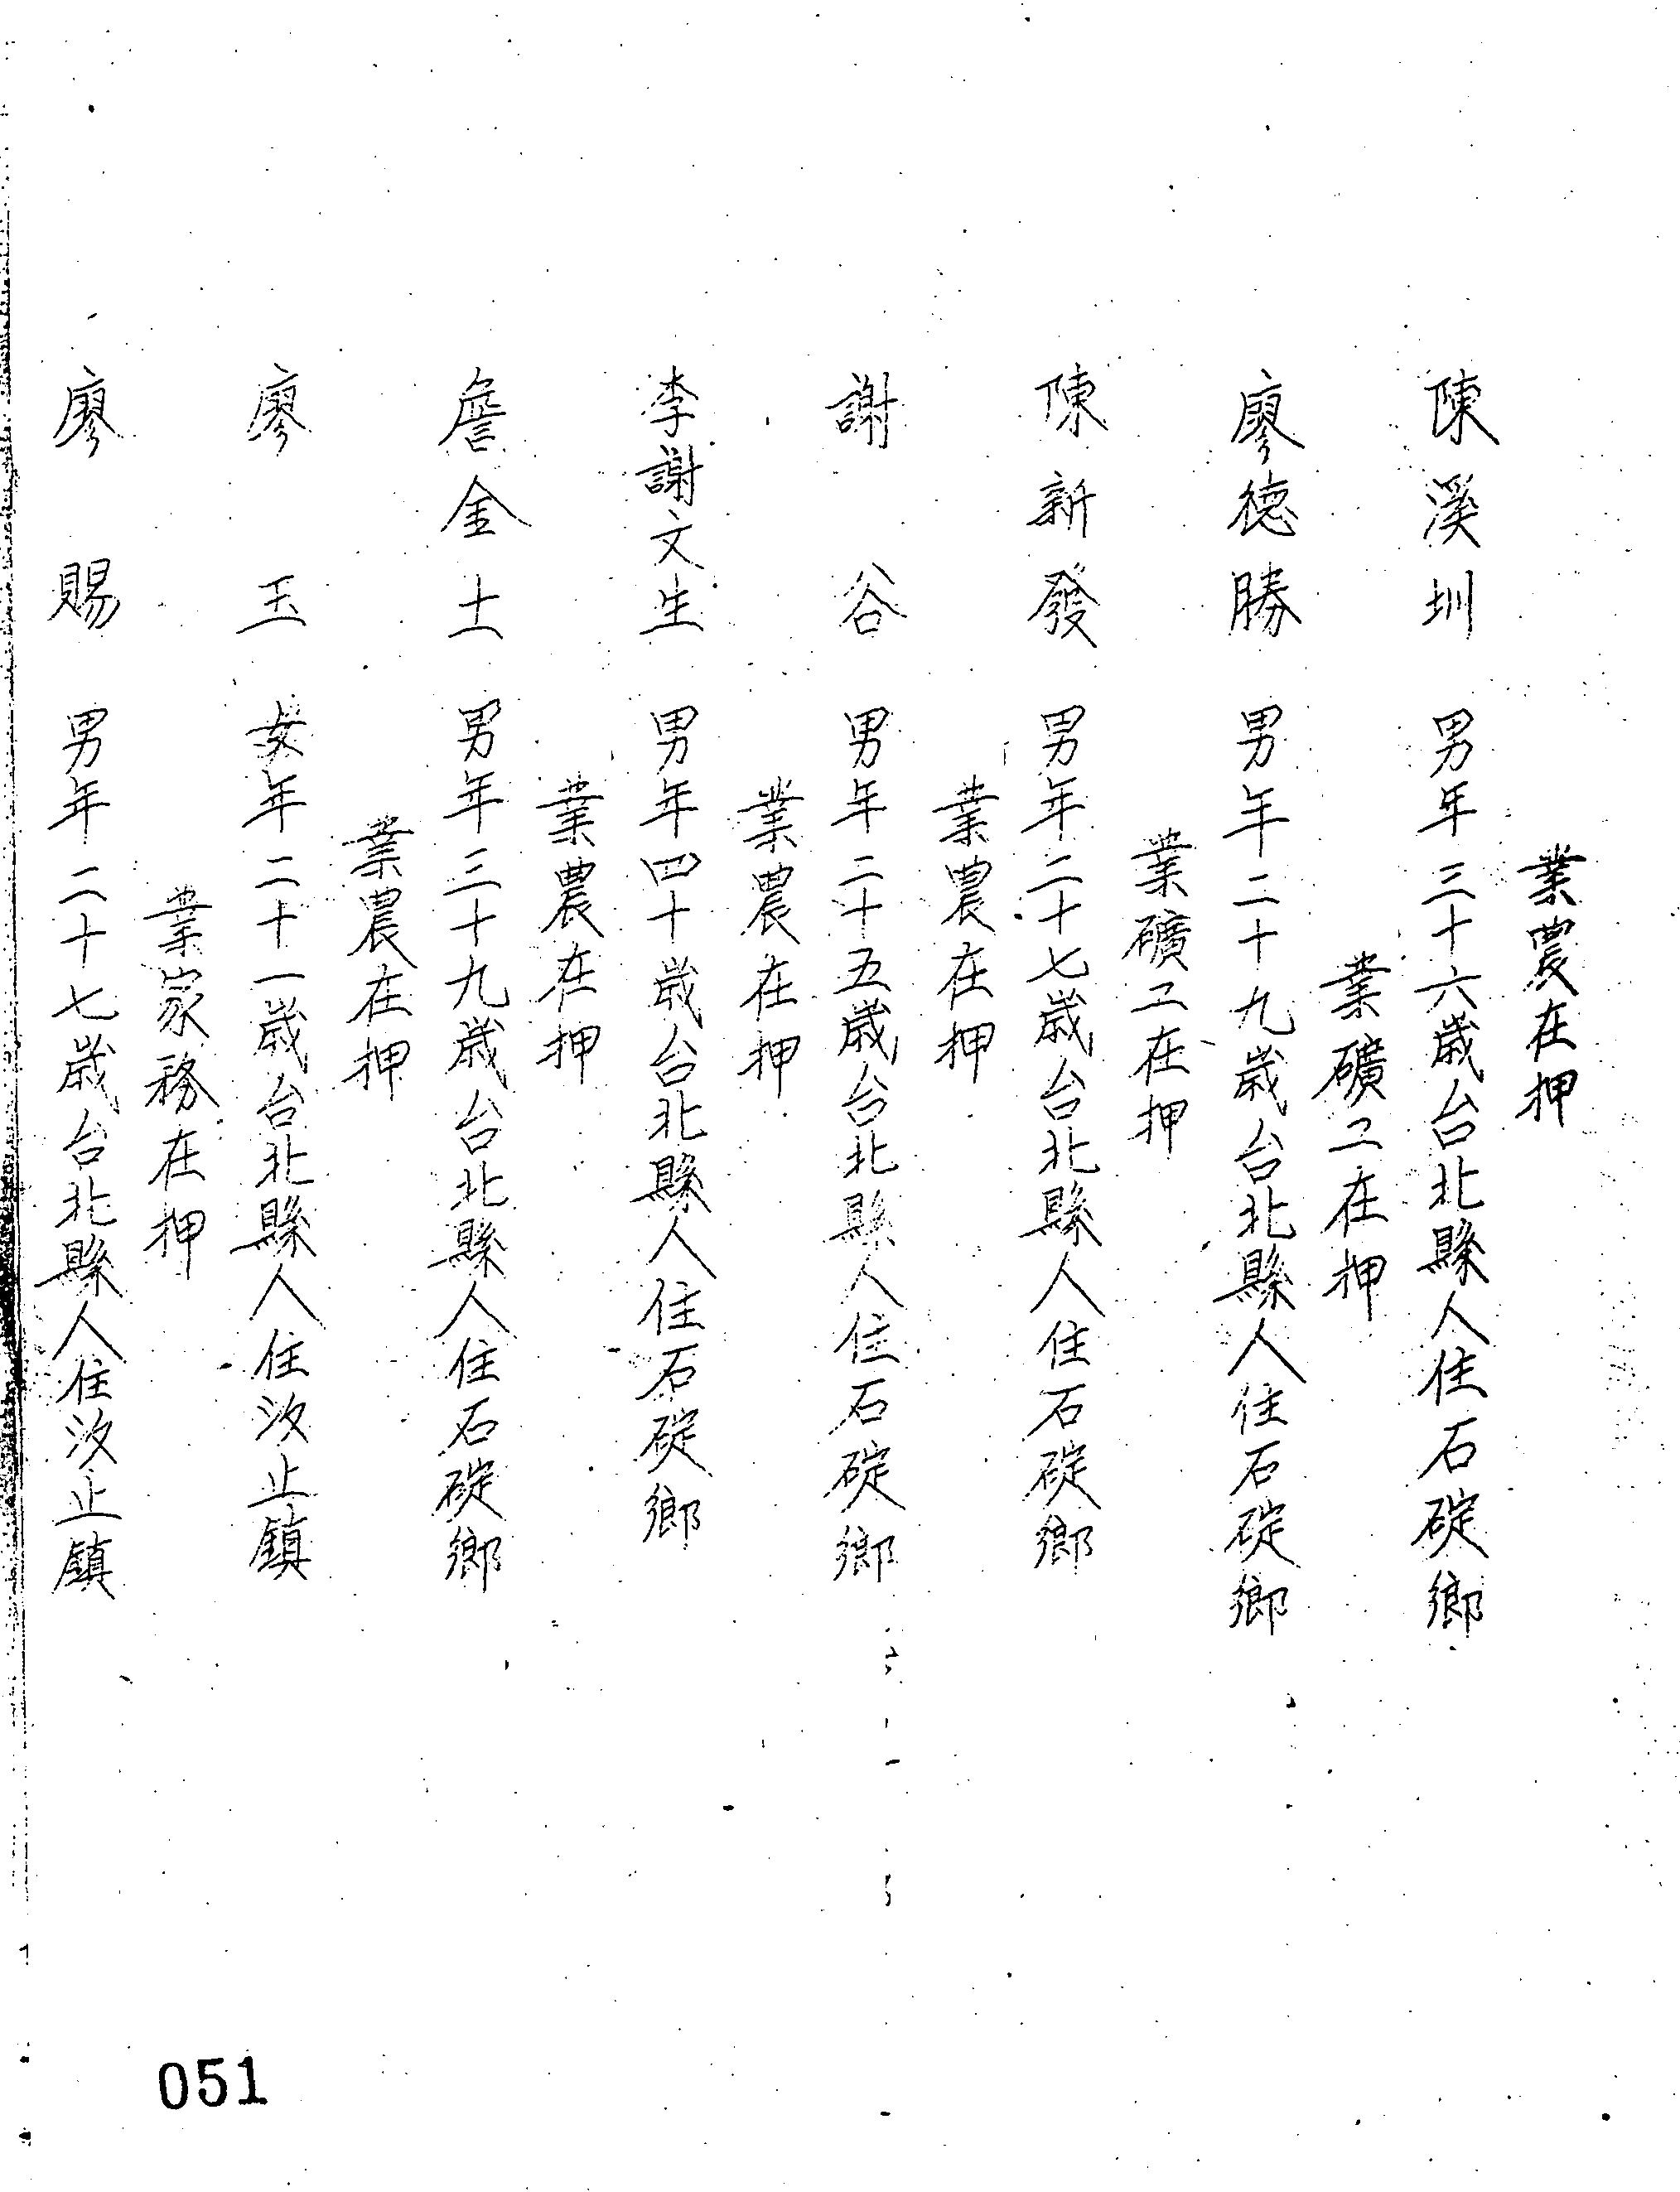 業農在押
陳溪圳 男年三十六歲台北縣人住石碇鄉
業礦工在押
廖德勝 男年二十九歲台北縣人住石碇鄉
業礦工在押
陳新發 男年二十七歲台北縣人住石碇鄉
業農在押
謝谷 男年二十五歲台北縣人住石碇鄉
業農在押
李謝文生 男年四十歲台北縣人住石碇鄉
業農在押
詹金土 男年三十九歲台北縣人住石碇鄉
業農在押
廖玉 女年二十一歲台北縣人住汐止鎮
業家務在押
廖賜 男年二十七歲台北縣人住汐止鎮
051